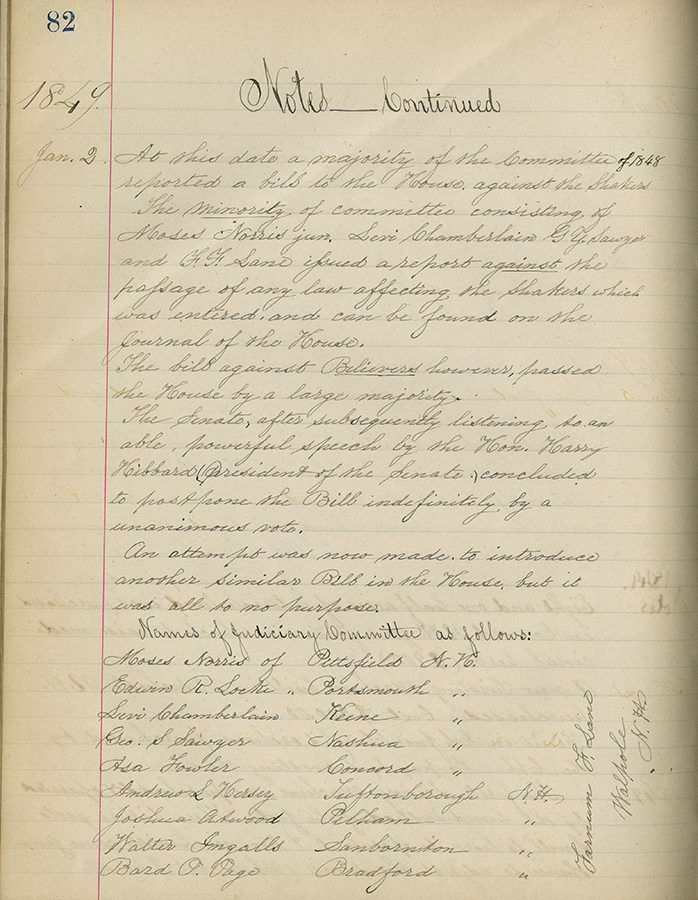 82
1849.
Notes — Continued
Jan. 2. At this date a majority of the Committee of 1848
reported a bill to the House against the Shakers
The Minority of committee consisting of
Moses Norris jun. Levi Chamberlain G Y. Sawyer
and F. F. Lane issued a report against the
passage of any law affecting the Shakers which
was entered and can be found on the
Journal of the House.
The bill against Believers however, passed
the House by a large majority.
The Senate, after subsequently listening to an
able, powerful speech by the Hon. Harry
Hibbard (President of the Senate.) concluded
to postpone the Bill indefinitely by a
unanimous vote.
An attempt was now made to introduce
another similar Bill in the House, but it
was all to no purpose.
Names of Judiciary Committee as follows:
Moses Norris of Pittsfield N. H.
Edwin R. Locke " Portsmouth "
Levi Chamberlain Keene "
Geo. S Sawyer Nashua "
Asa Fowler Concord "
Andrew L Hersey Tuftonborough N. H.
Joshua Atwood Pelham "
Walter Ingalls Sanbornton "
Bard P. Page Bradford "
Farnum F. Lane
Walpole
N. H.